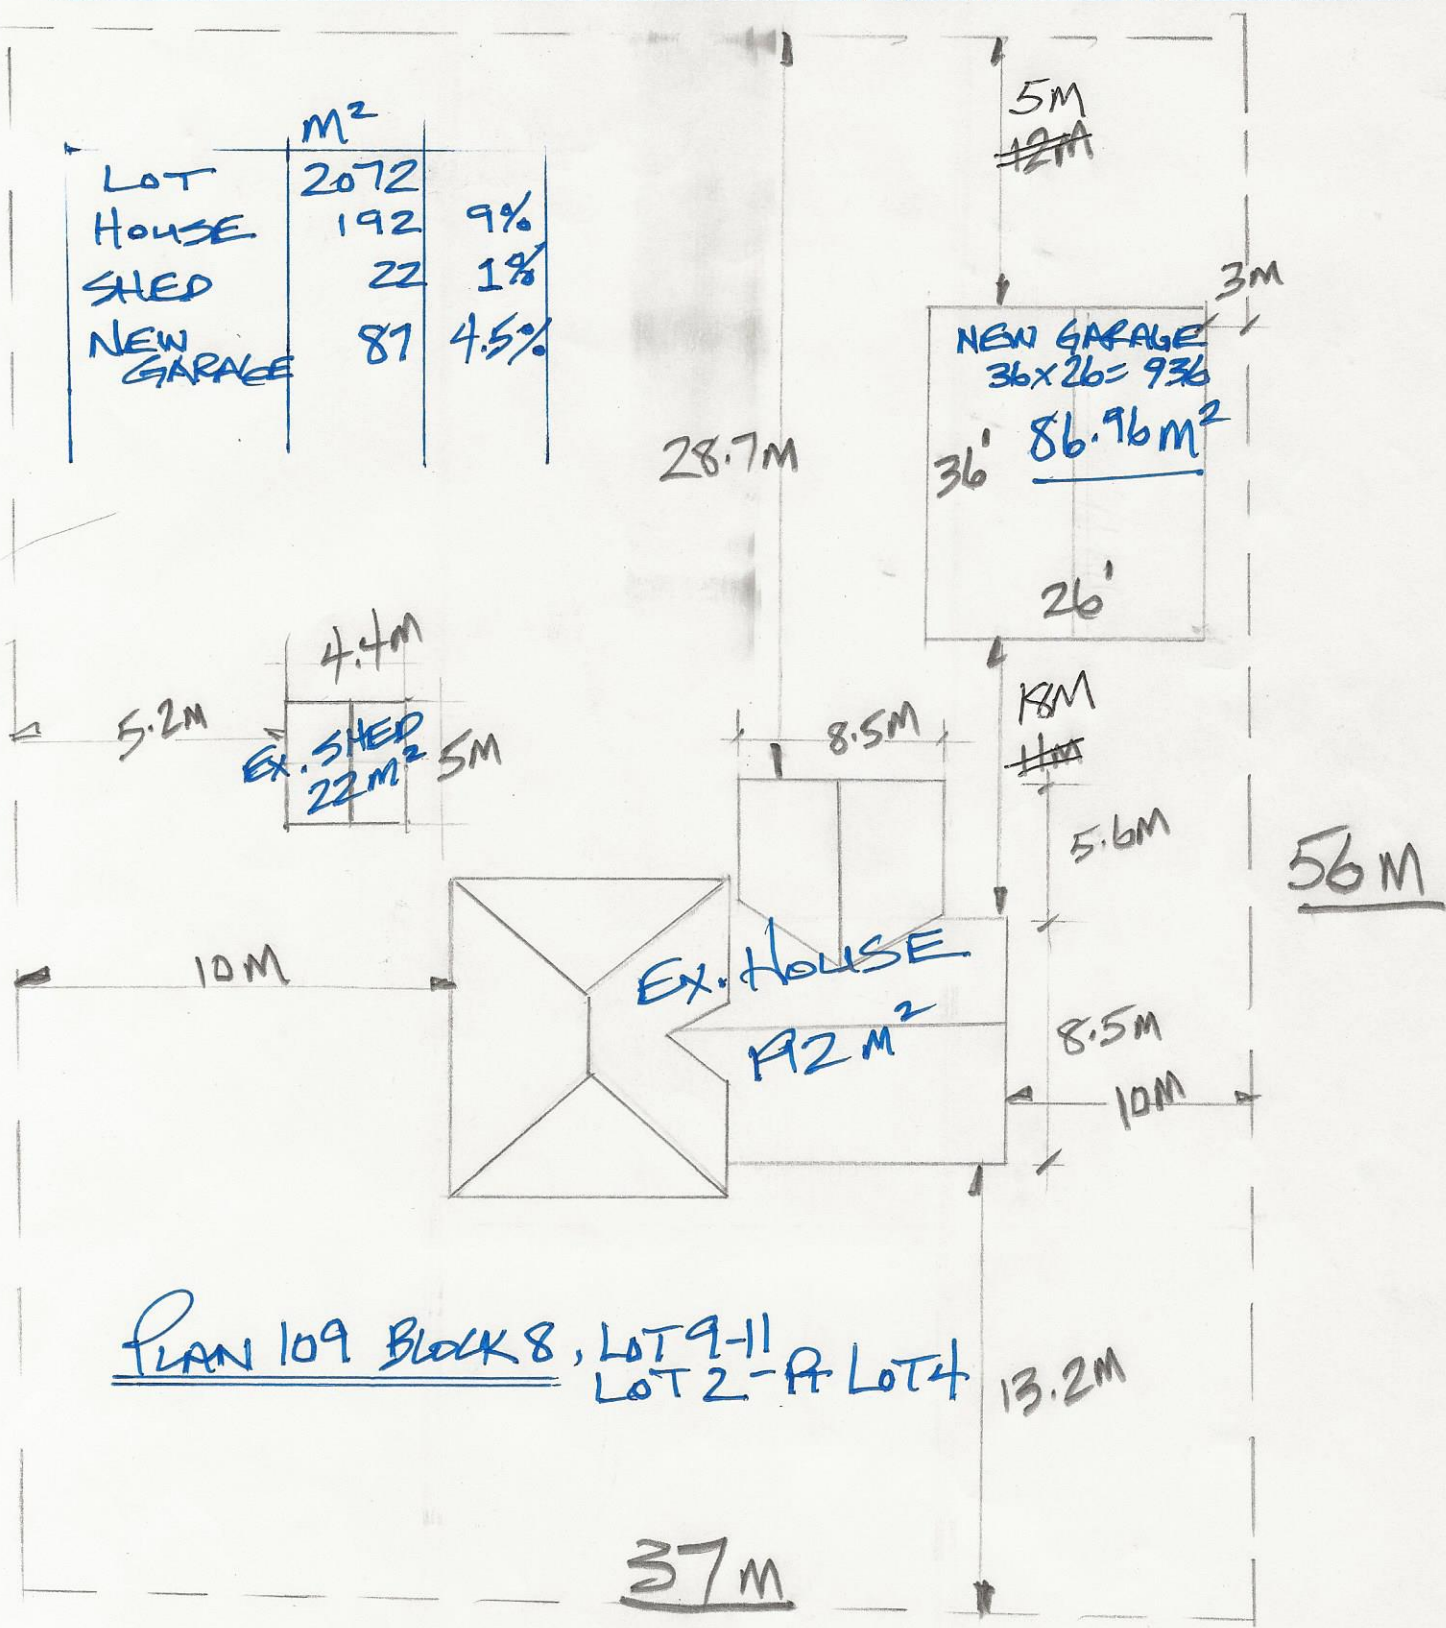 m²
LOT 2072
HOUSE 192 9%
SHED 22 1%
NEW 87 4.5%
GARAGE
5M
12M
3M
NEW GARAGE
36x26= 936
86.96 m²
36'
26'
28.7M
4.4M
5.2M
EX. SHED
22m²
5M
18M
11M
8.5M
5.6M
56 M
10M
EX. HOUSE
192 M²
8.5M
10M
PLAN 109 BLOCK 8, LOT 9-11
LOT 2 - Pt LOT 4
13.2M
37M